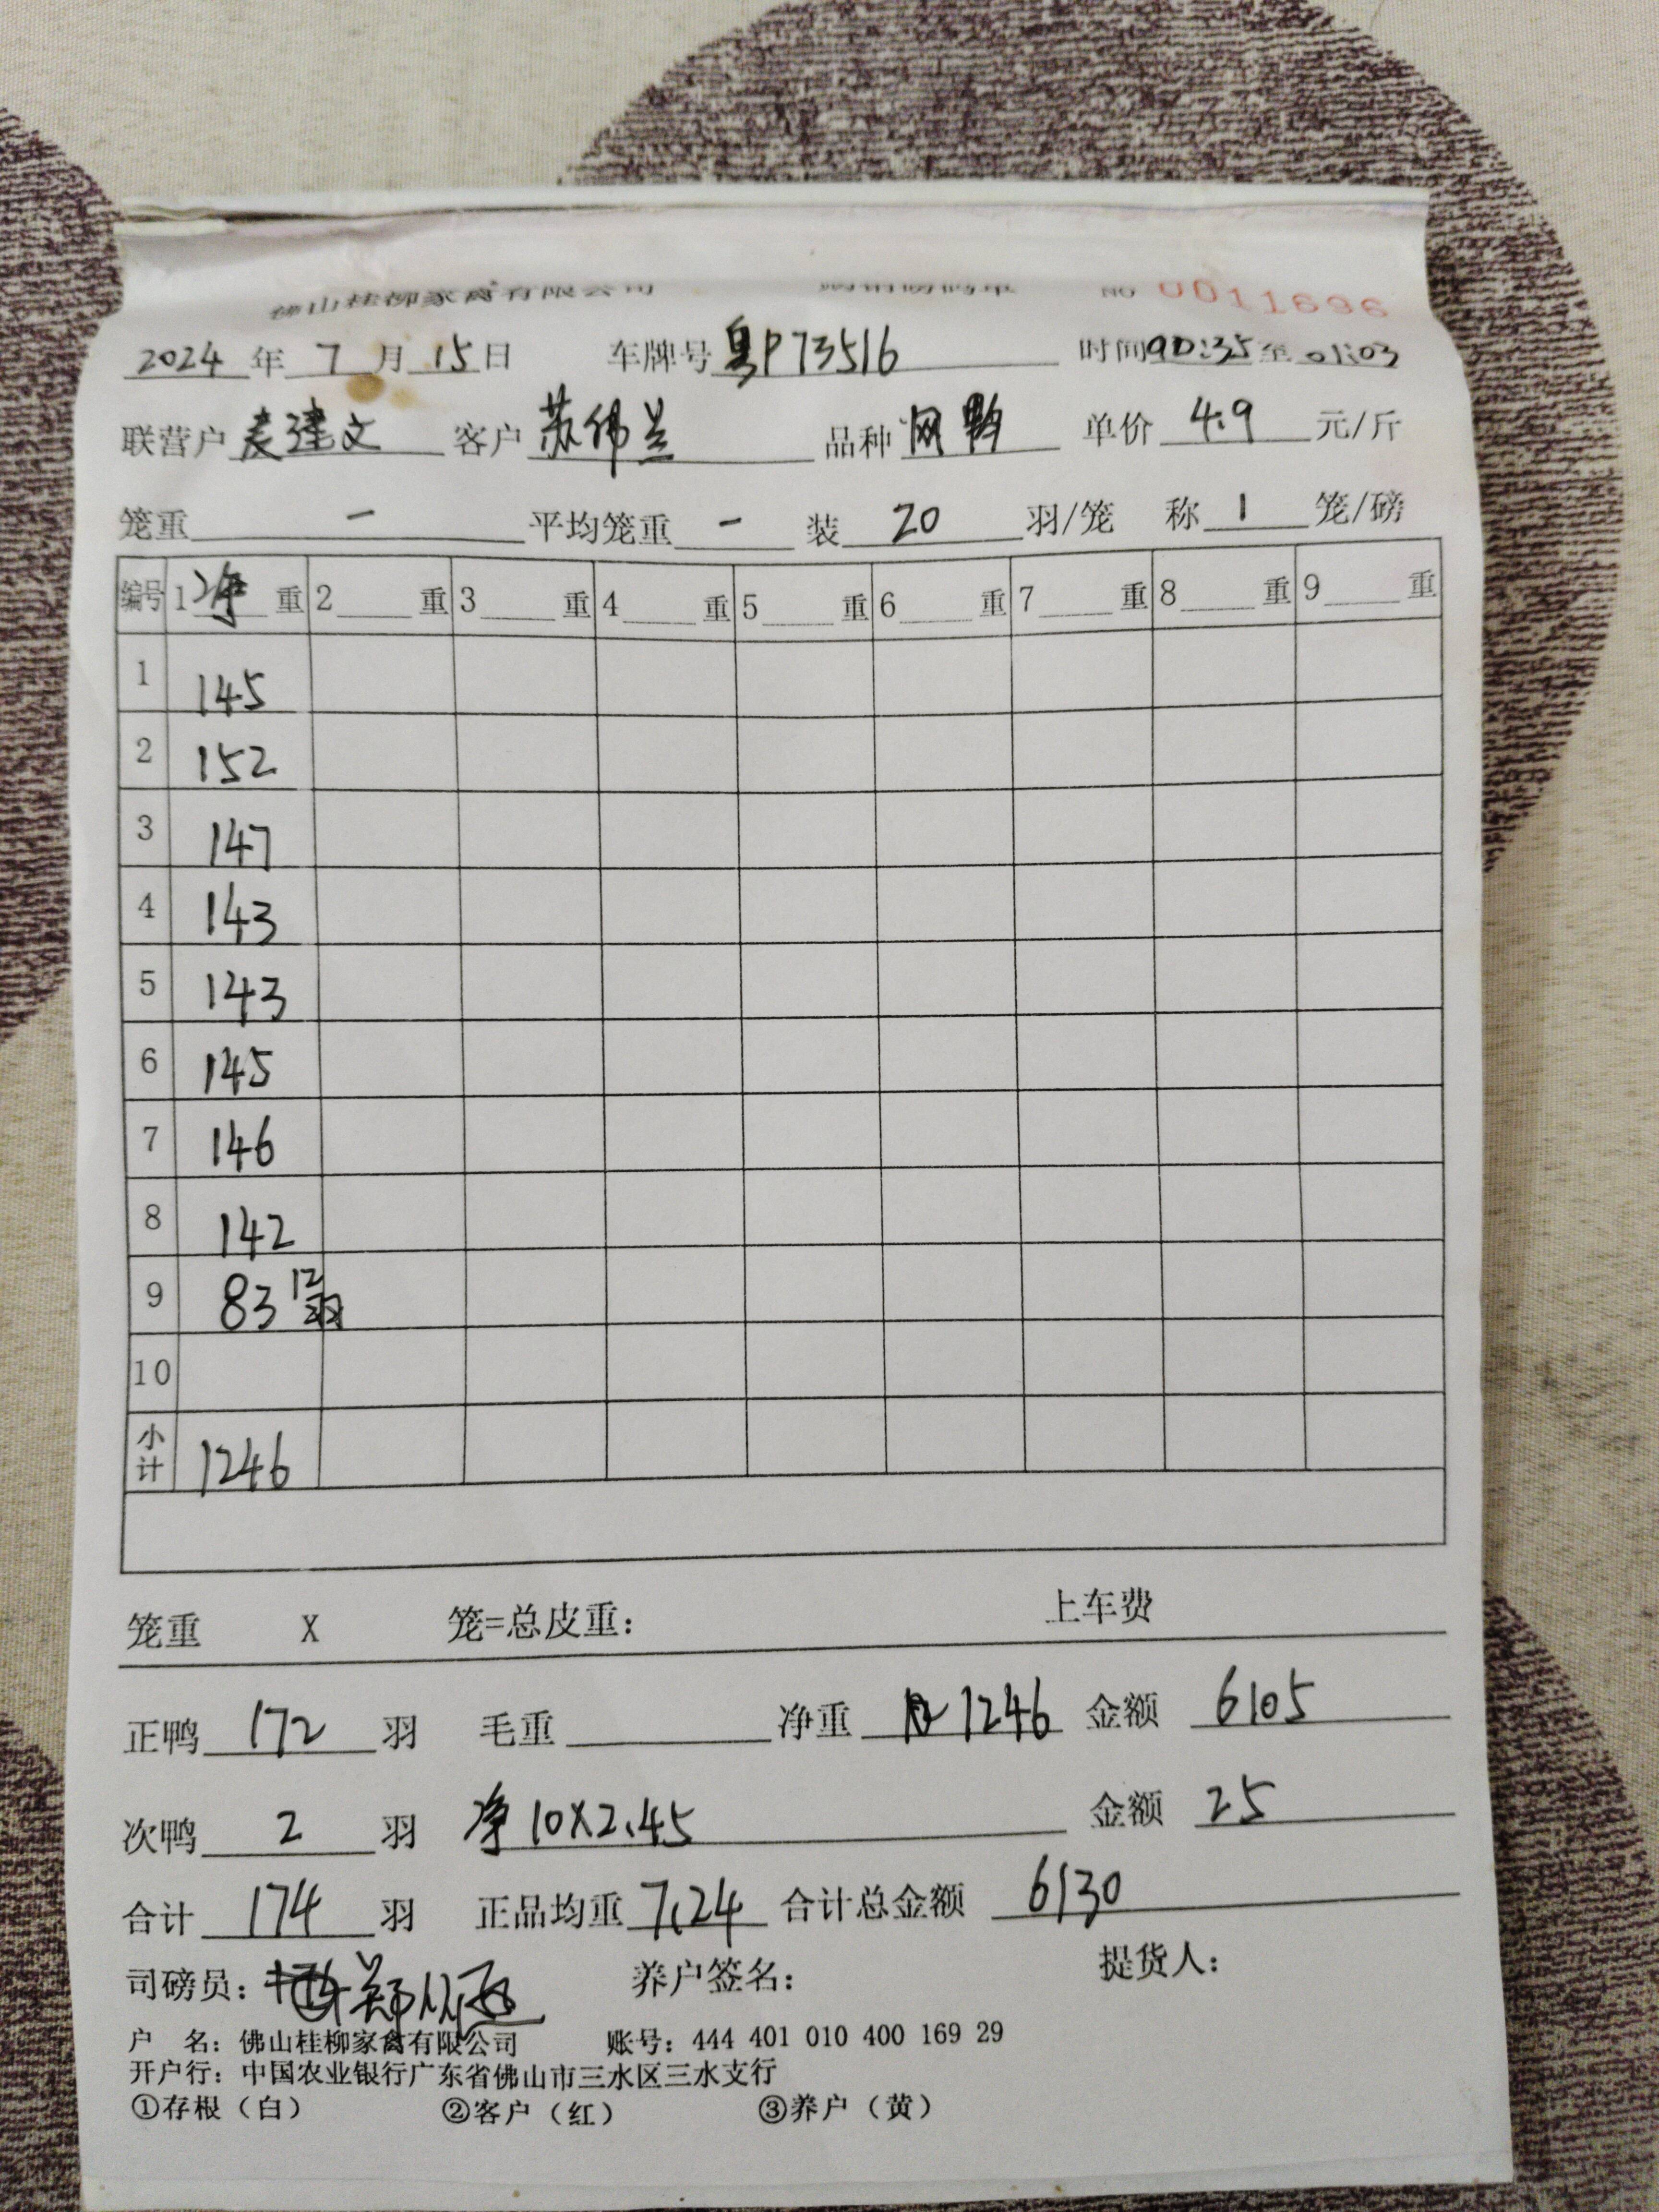 佛山桂柳家禽有限公司 购销磅码单 No 0011696
2024年7月15日 车牌号粤P73516 时间00:35至01:03
联营户麦建文 客户苏伟兰 品种网鸭 单价4.9元/斤
笼重 - 平均笼重 - 装20羽/笼 称1笼/磅
编号 1净重 2重 3重 4重 5重 6重 7重 8重 9重
1 145
2 152
3 147
4 143
5 143
6 145
7 146
8 142
9 83 12羽
10
小计 1246
笼重 X 笼=总皮重: 上车费
正鸭172羽 毛重 净重1246 金额6105
次鸭2羽 净10X2.45 金额25
合计174羽 正品均重7.24 合计总金额6130
司磅员: 郑 养户签名: 提货人:
户 名: 佛山桂柳家禽有限公司 账号: 444 401 010 400 169 29
开户行: 中国农业银行广东省佛山市三水区三水支行
①存根（白） ②客户（红） ③养户（黄）